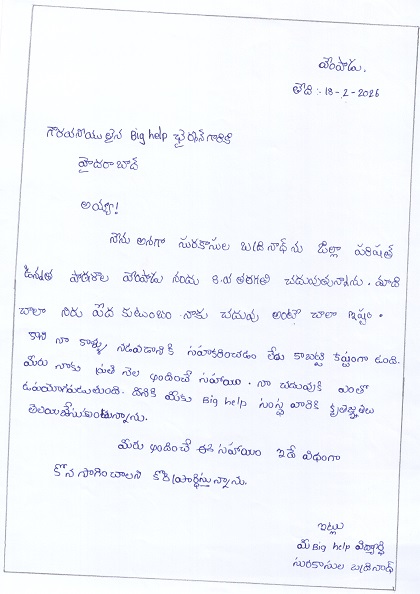 వేంపాడు.
తేది :- 18-2-2026
గౌరవనీయులైన Big help ఛైర్మన్ గారికి
హైదరాబాద్
అయ్యా!
నేను అనగా సురకాసుల బద్రినాథ్ ను జిల్లా పరిషత్
ఉన్నత పాఠశాల వేంపాడు నందు 8.వ తరగతి చదువుతున్నాను. మాది
చాలా నిరు పేద కుటుంబం. నాకు చదువు అంటే చాలా ఇష్టం.
కాని నా కాళ్ళు, నడవడానికి సహకరించడం లేదు కాబట్టి కష్టంగా ఉంది.
మీరు నాకు ప్రతి నెల అందించే సహాయం. నా చదువుకి ఎంతో
ఉపయోగపడుతుంది. దీనికి మీకు Big help సంస్థ వారికి కృతజ్ఞతలు
తెలియజేసుకుంటున్నాను.
మీరు అందించే ఈ సహాయం ఇదే విధంగా
కొన సాగించాలని కోరి ప్రార్థిస్తున్నాను.
ఇట్లు
మీ Big help విద్యార్థి
సురకాసుల బద్రినాథ్